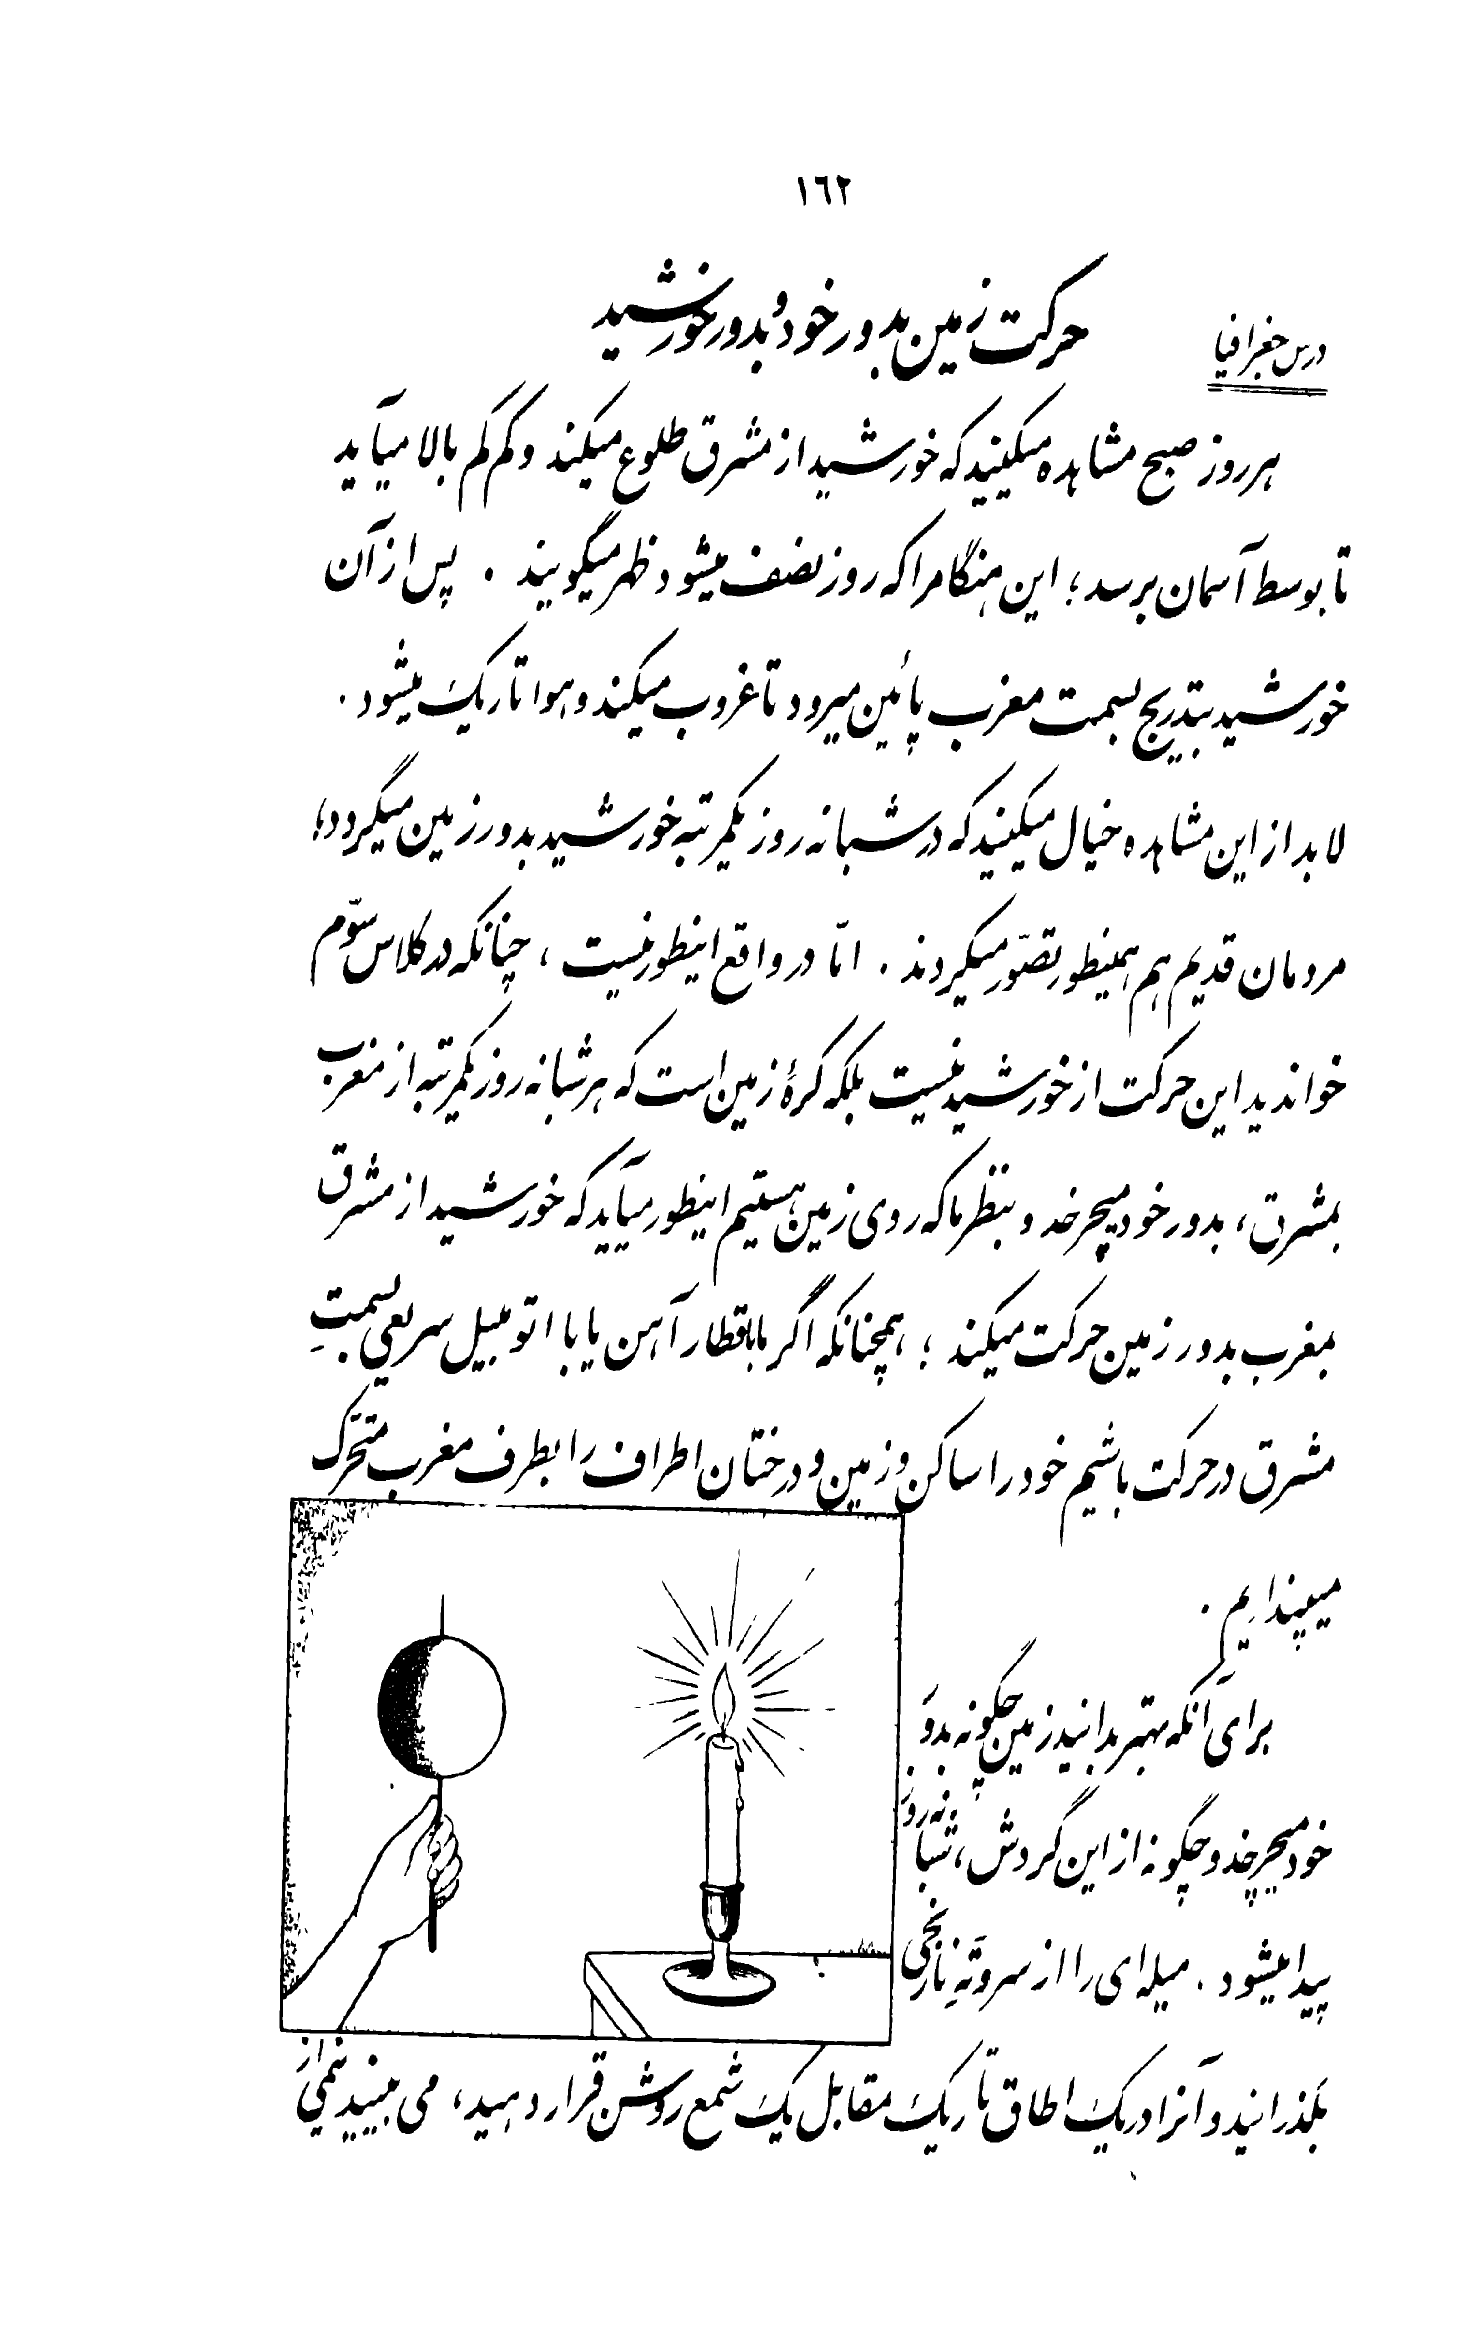 ١٦٢
درس جغرافیا
حرکت زمین بدور خود و بدور خورشید
هر روز صبح مشاهده میکنید که خورشید از مشرق طلوع میکند و کم کم بالا میآید
تا بوسط آسمان برسد؛ این هنگام را که روز نصف میشود ظهر میگویند . پس از آن
خورشید بتدریج بسمت مغرب پائین میرود تا غروب میکند و هوا تاریک میشود .
لابد از این مشاهده خیال میکنید که در شبانه روز یکمرتبه خورشید بدور زمین میگردد؛
مردمان قدیم هم همینطور تصوّر میکردند . امّا در واقع اینطور نیست ، چنانکه در کلاس سوّم
خواندید این حرکت از خورشید نیست بلکه کرهٔ زمین است که هر شبانه روز یکمرتبه از مغرب
بمشرق ، بدور خود میچرخد و بنظر ما که روی زمین هستیم اینطور میآید که خورشید از مشرق
بمغرب بدور زمین حرکت میکند ؛ همچنانکه اگر ما با قطار آهن یا با اتومبیل سریعی بسمتِ
مشرق در حرکت باشیم خود را ساکن و زمین و درختان اطراف را بطرف مغرب متحرّک
میپنداریم .
برای آنکه بهتر بدانید زمین چگونه بدورِ
خود میچرخد و چگونه از این گردش ، شبانه روز
پیدا میشود . میله ای را از سر و تهِ نارنجی
بگذرانید و آنرا در یک اطاق تاریک مقابل یک شمع روشن قرار دهید ، می بینید نیمی از